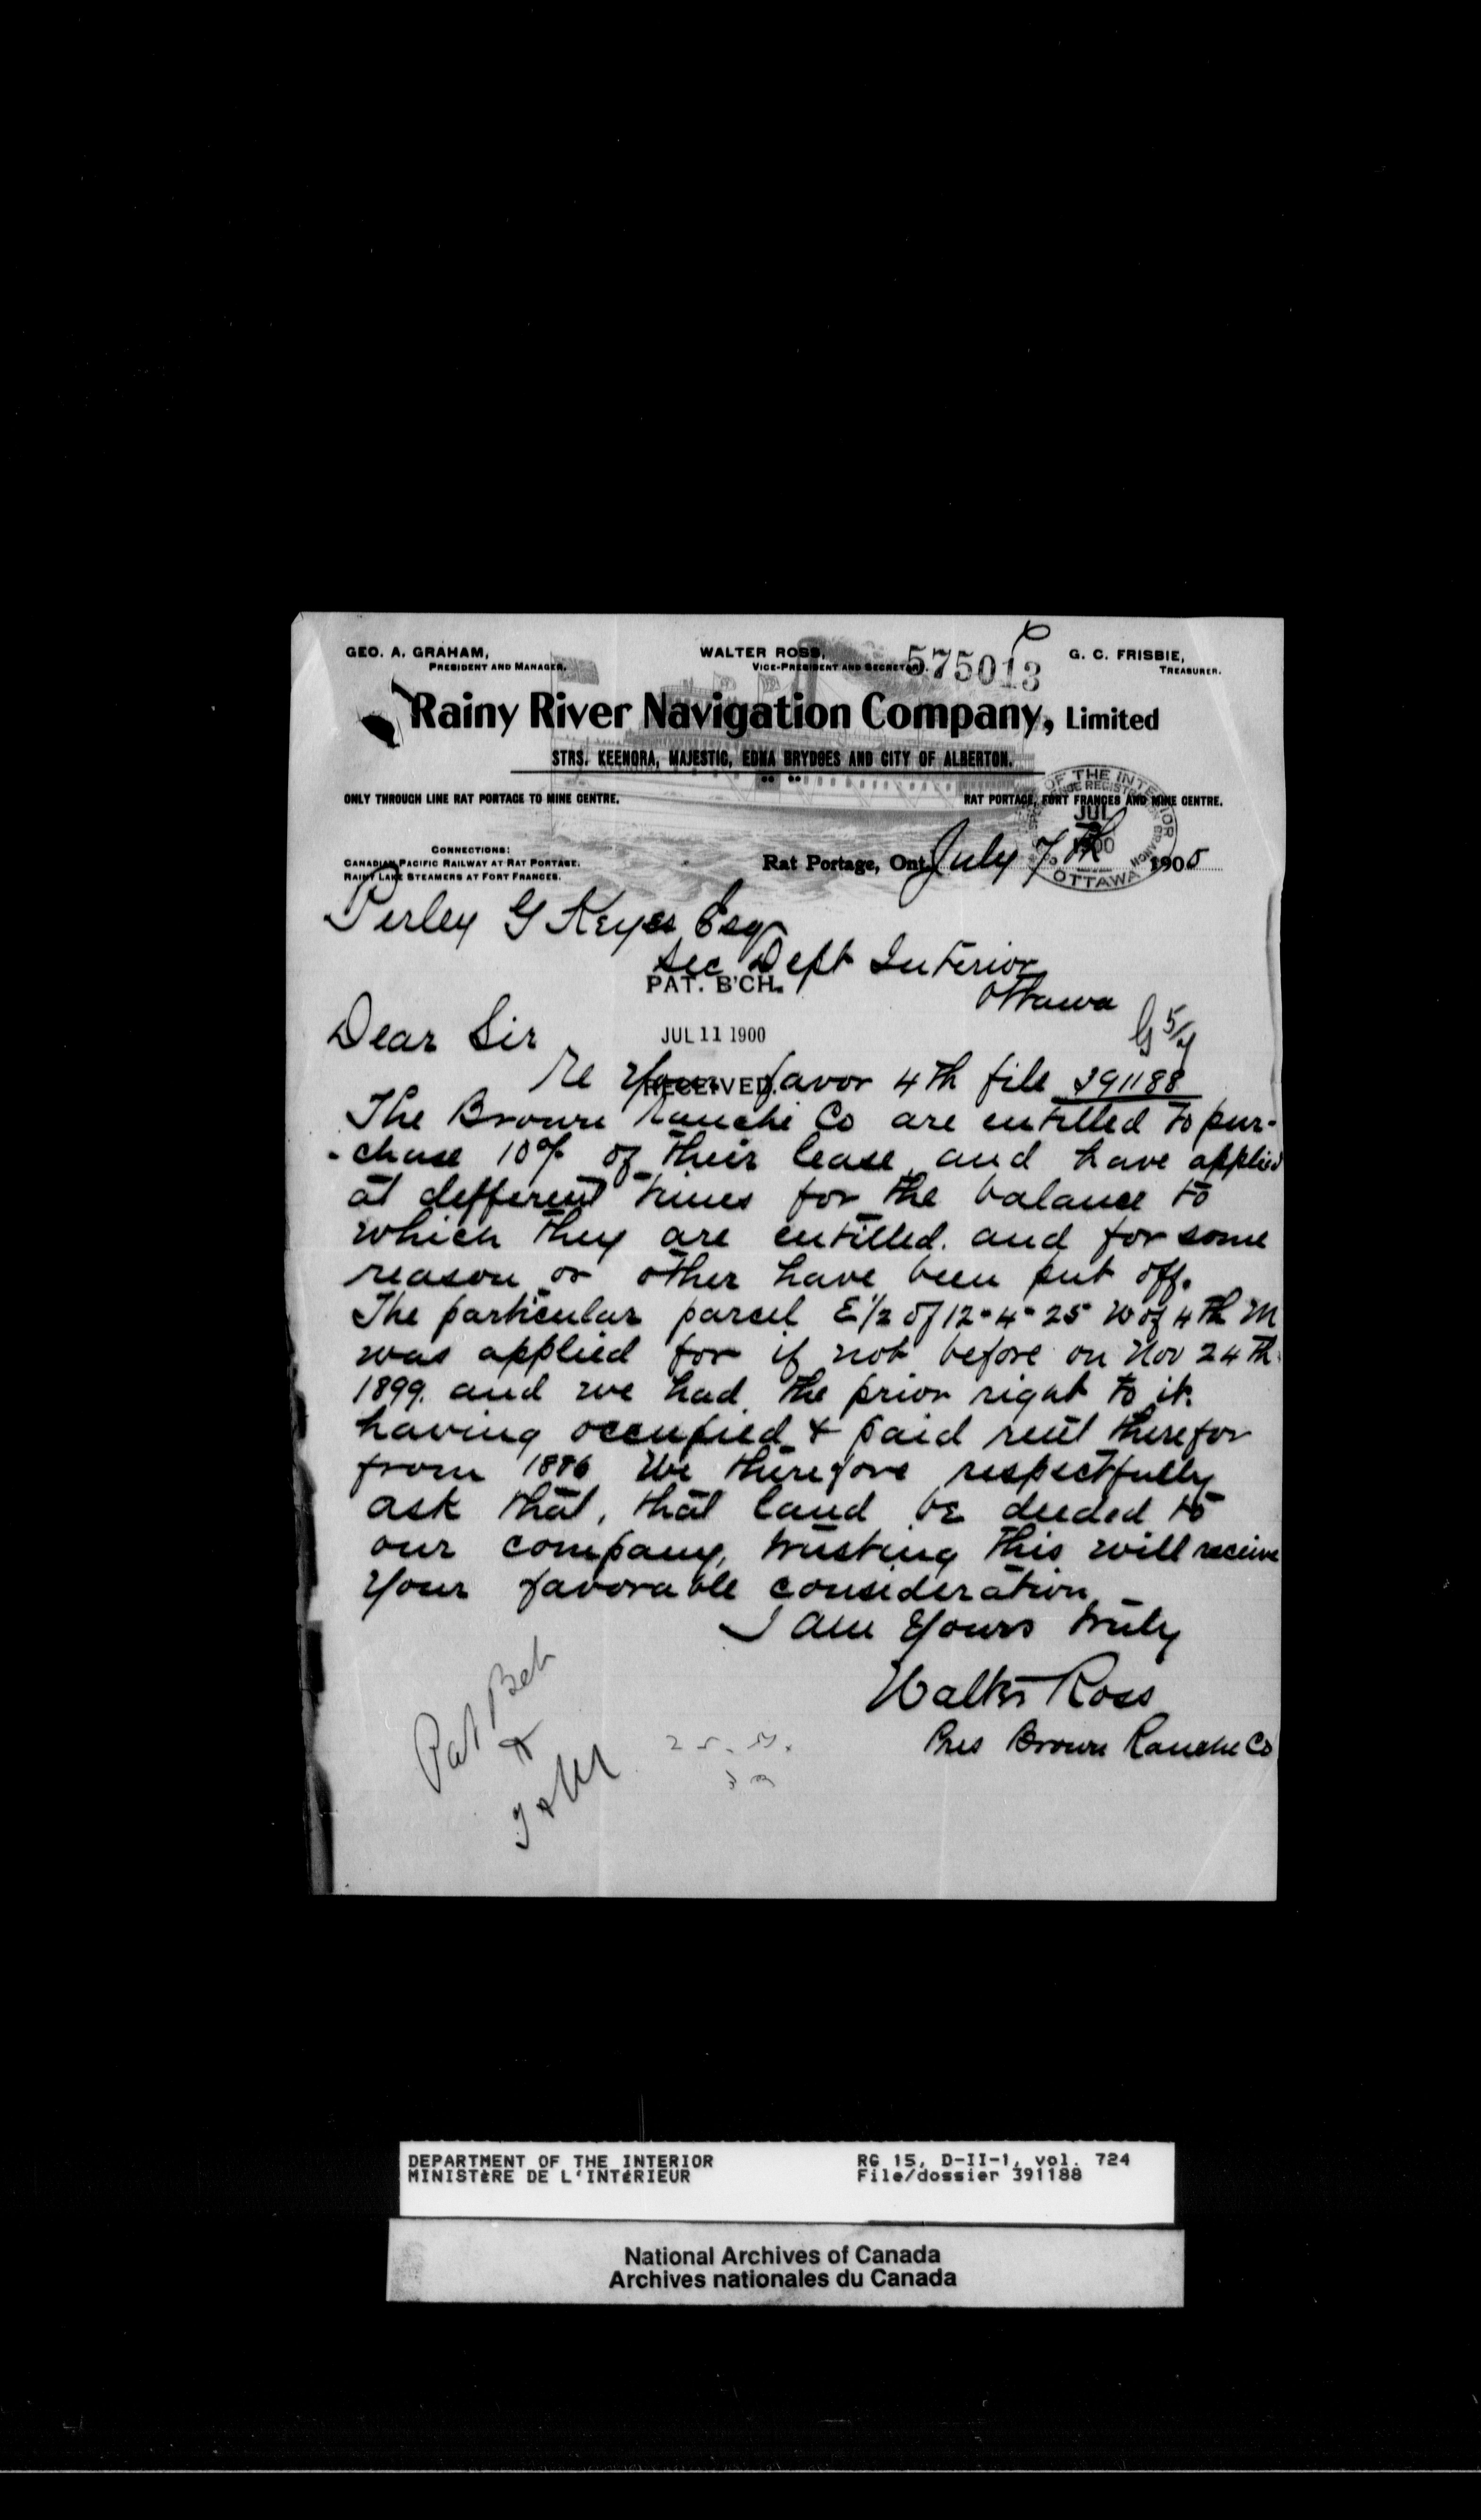 GEO. A. GRAHAM,
PRESIDENT AND MANAGER.
WALTER ROSS,
VICE-PRESIDENT AND SECRETARY.
575013
G. C. FRISBIE,
TREASURER.
Rainy River Navigation Company, Limited
STRS. KEENORA, MAJESTIC, EDNA BRYDGES AND CITY OF ALBERTON.
ONLY THROUGH LINE RAT PORTAGE TO MINE CENTRE.
RAT PORTAGE, FORT FRANCES AND MINE CENTRE.
CONNECTIONS:
CANADIAN PACIFIC RAILWAY AT RAT PORTAGE.
RAINY LAKE STEAMERS AT FORT FRANCES.
OF THE INTERIOR
JUL
1900
OTTAWA
Rat Portage, Ont. July 7th 1900
Perley G Keyes Esq
Sec Dept Interior
Ottawa
PAT. B'CH.
JUL 11 1900
RECEIVED.
Dear Sir
Re Your favor 4th file 391188
The Brown Ranche Co are entitled to pur-
-chase 10% of their lease and have applied
at defferent times for the balance to
which they are entitled. and for some
reason or other have been put off.
The particular parcel E 1/2 of 12-4-25 W of 4th M
was applied for if not before on Nov 24th
1899. and we had the prior right to it.
having occupied & paid rent therefor
from 1886 We therefore respectfully
ask that, that land be deeded to
our company, trusting this will receive
your favorable consideration
I am Yours truly
Walter Ross
Pres Brown Ranche Co
Pat Bch
&
DEPARTMENT OF THE INTERIOR
MINISTèRE DE L'INTéRIEUR
RG 15, D-II-1, vol. 724
File/dossier 391188
National Archives of Canada
Archives nationales du Canada